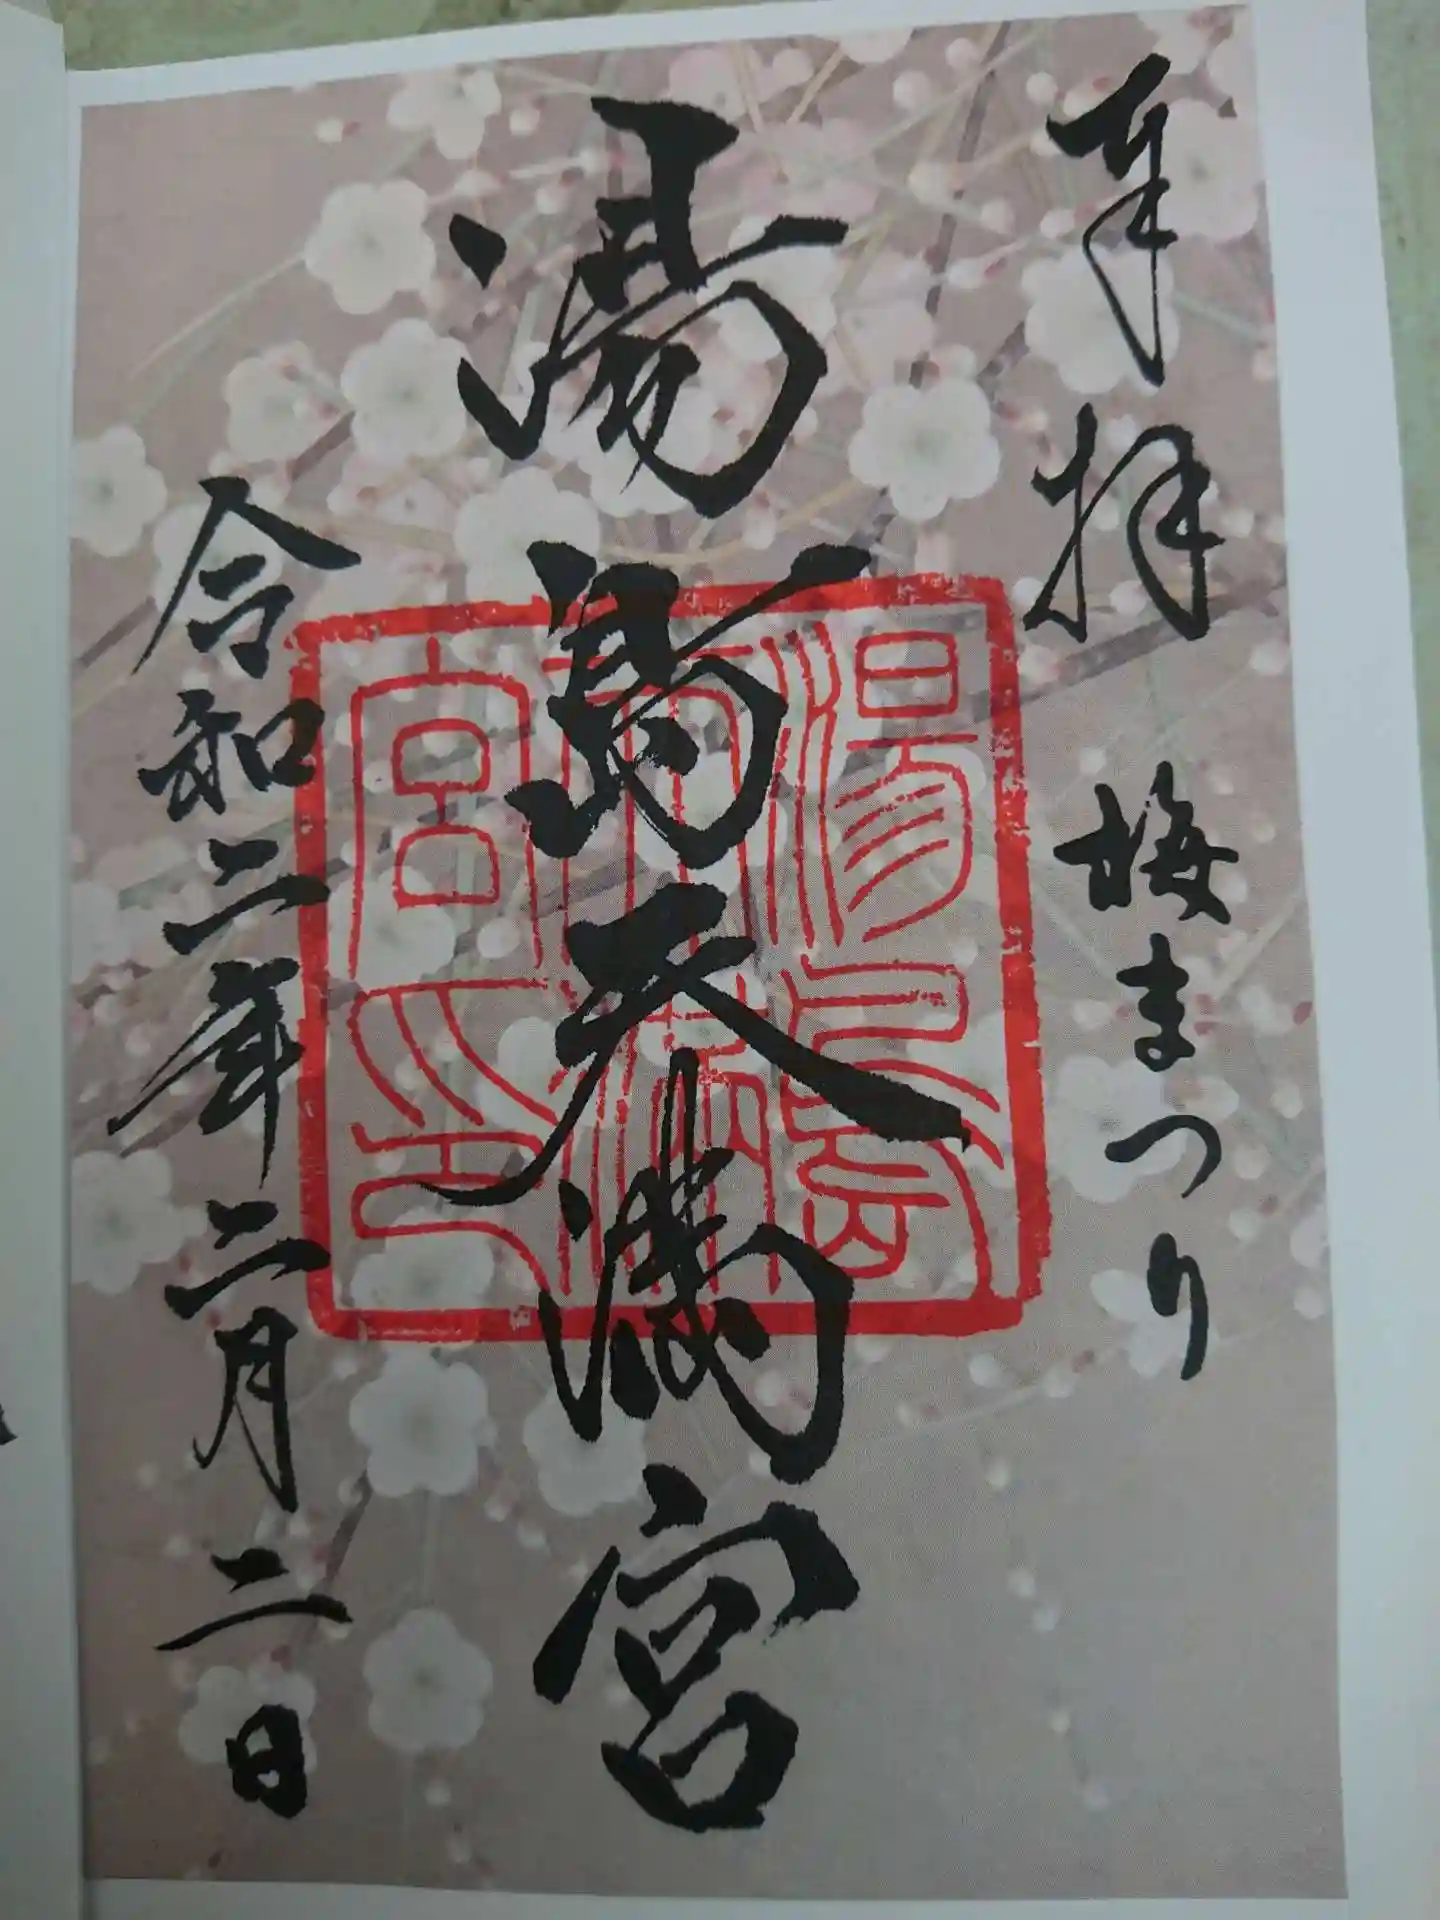 奉拝 梅まつり
湯島天満宮
湯島天満宮之印
令和二年二月二日